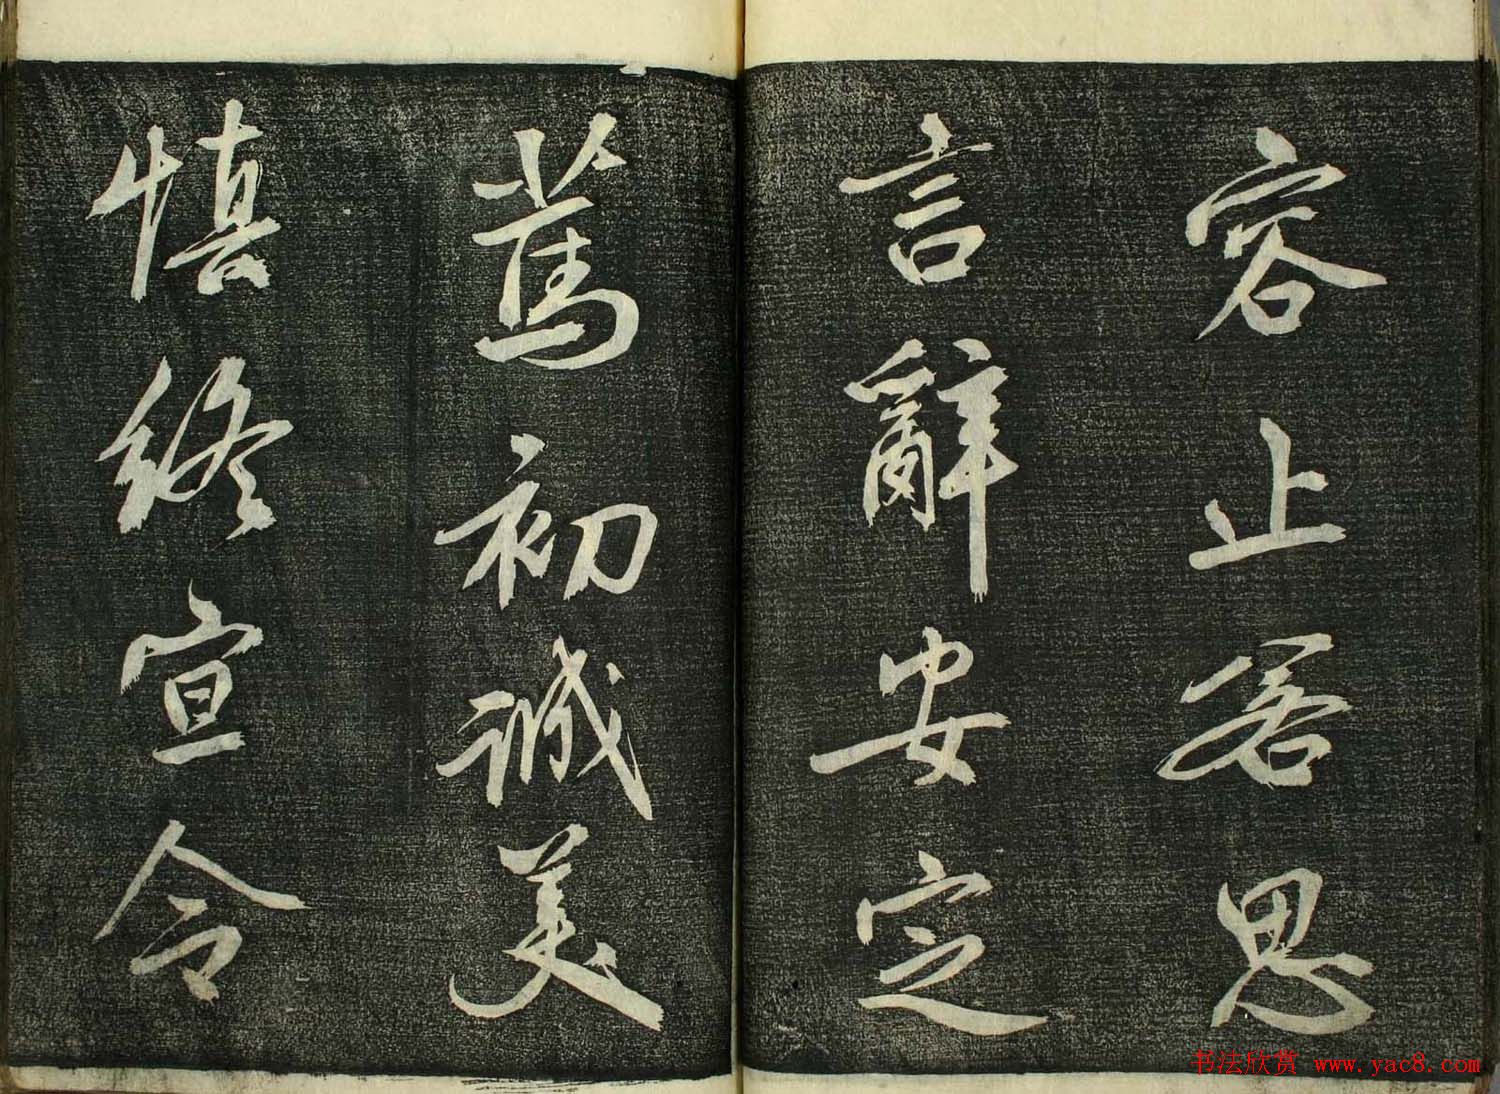 容止若思
言辭安定
篤初誠美
慎終宣令
书法欣赏 www.yac8.com